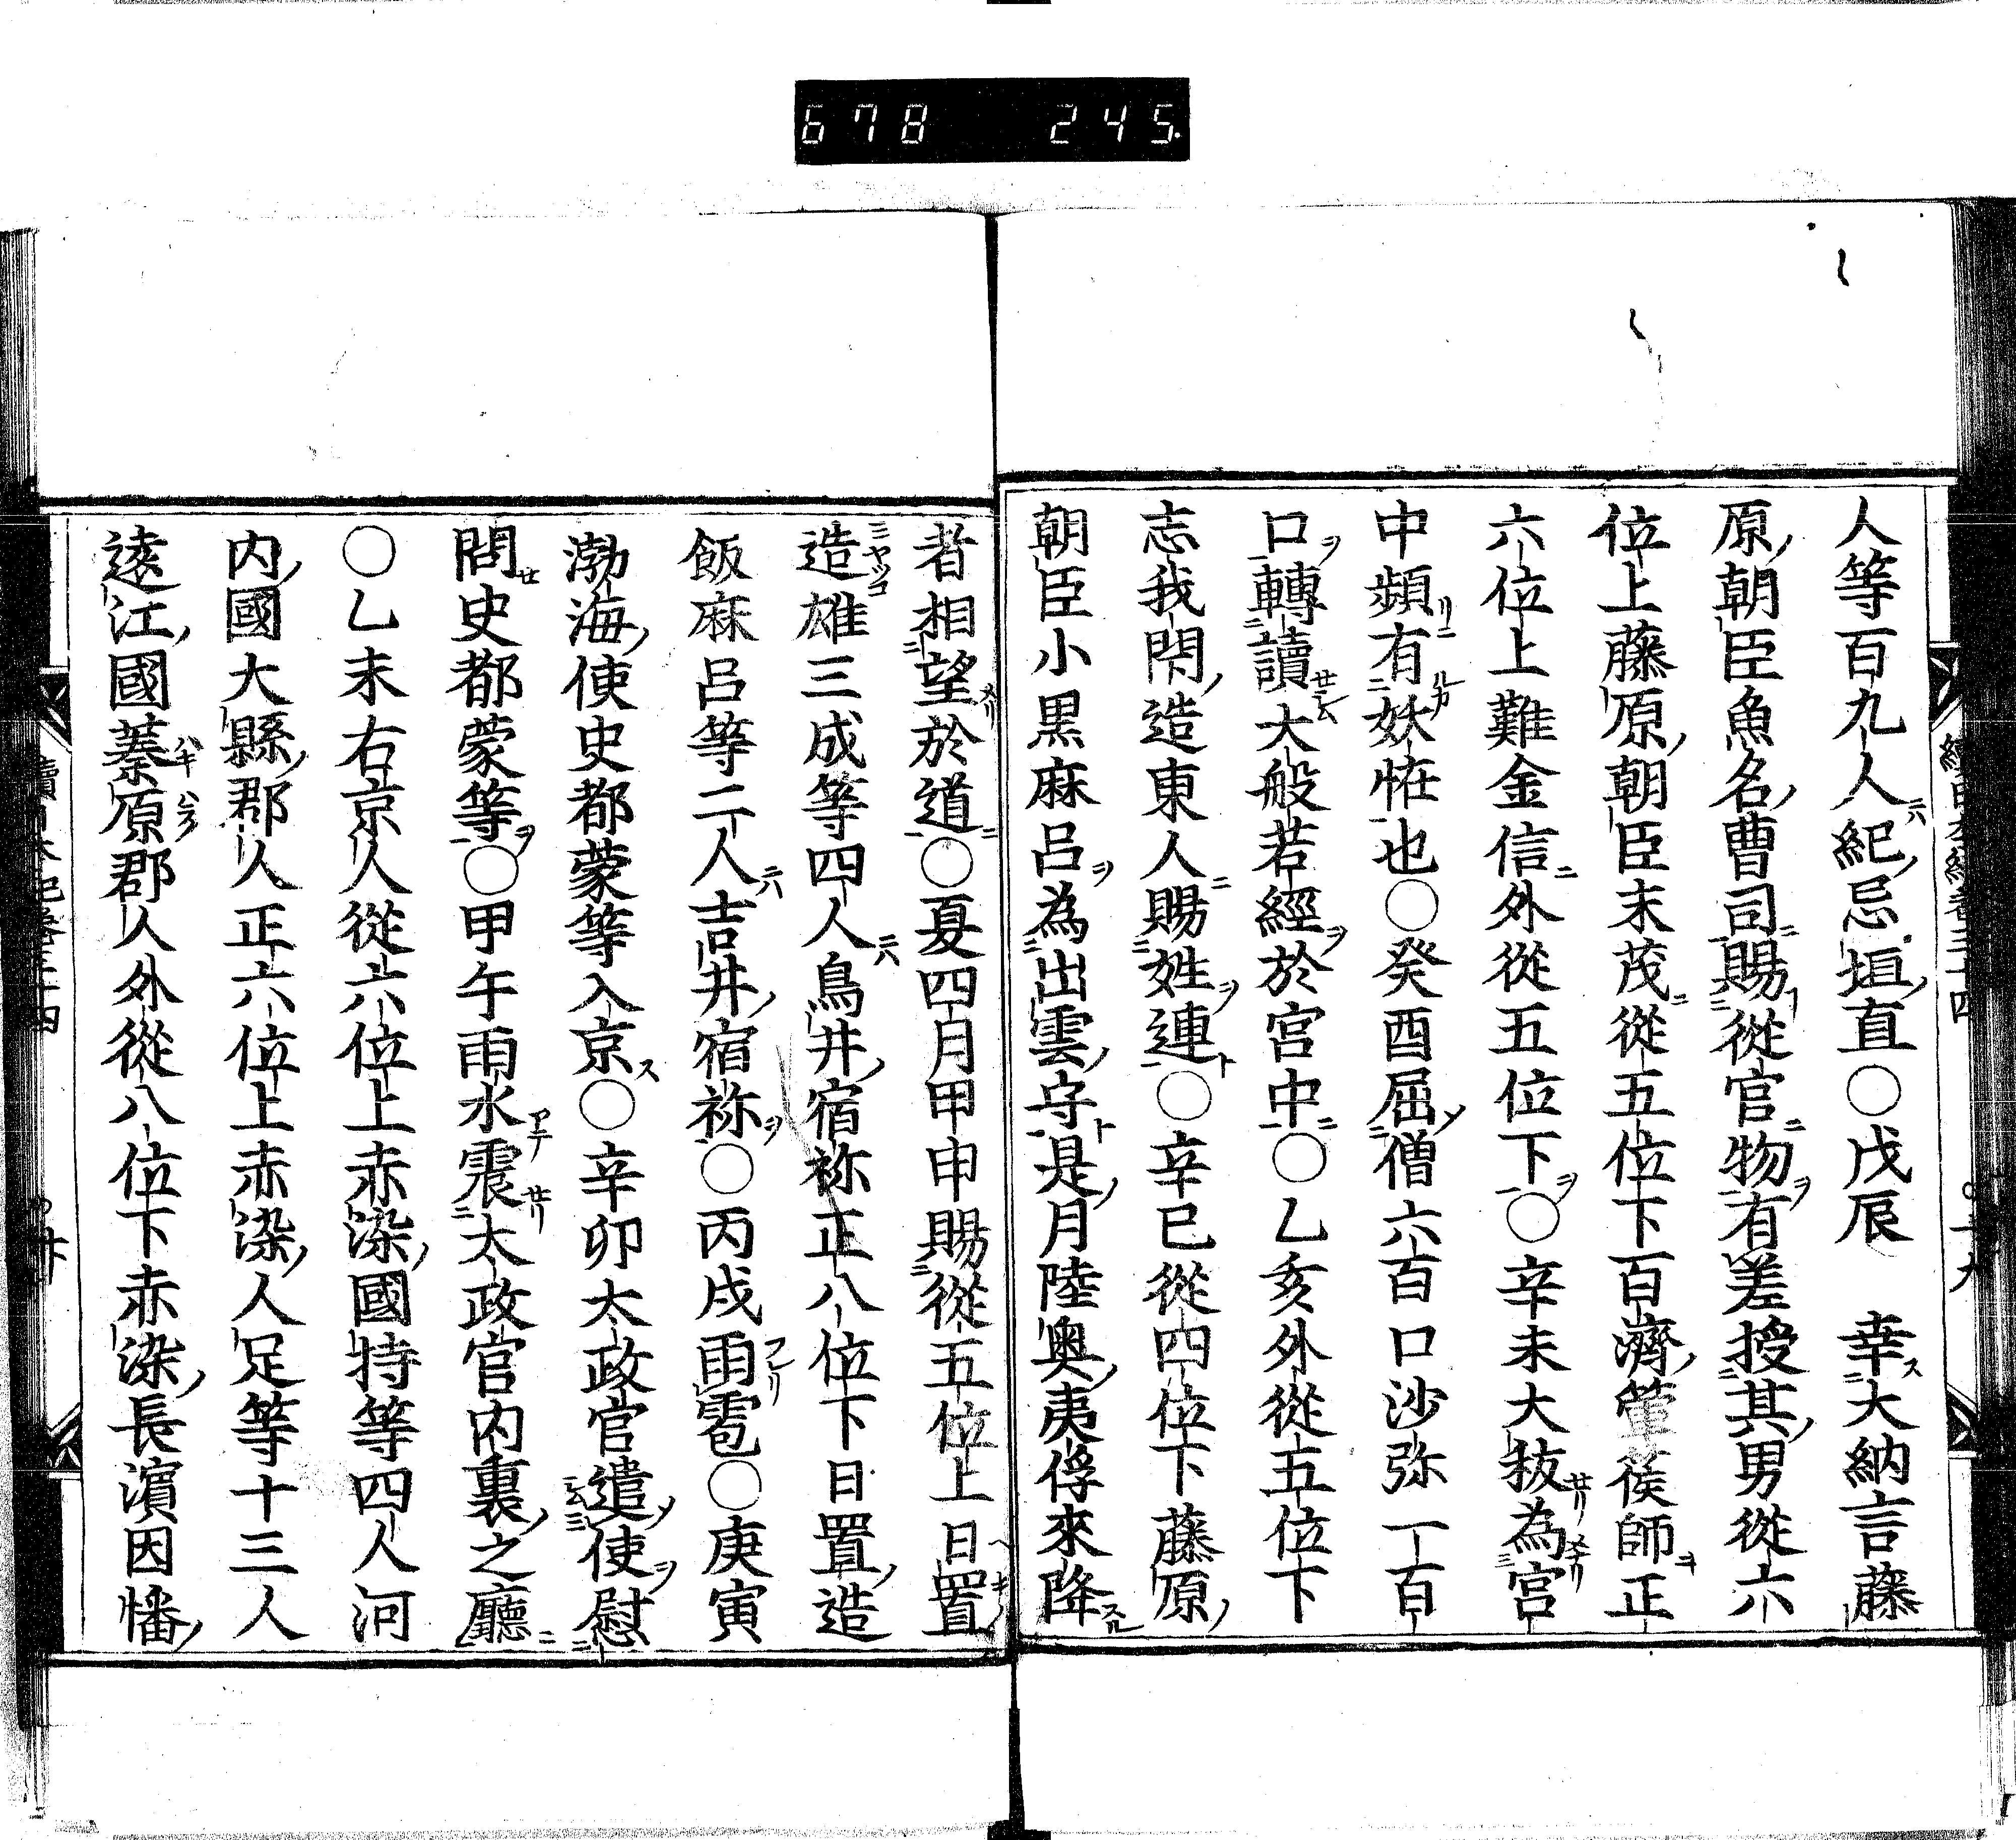 678 245
人等百九人紀忌垣直〇戊辰 幸大納言藤
原朝臣魚名曹司賜從官物有差授其男從六
位上藤原朝臣末茂從五位下百濟篳篌師正
六位上難金信外從五位下〇辛未大祓為宮
中頻有妖恠也〇癸酉屈僧六百口沙弥一百
口轉讀大般若經於宮中〇乙亥外從五位下
志我閇造東人賜姓連〇辛巳從四位下藤原
朝臣小黒麻呂為出雲守是月陸奥夷俘來降
者相望於道〇夏四月甲申賜從五位上日置
造雄三成等四人鳥井宿祢正八位下日置造
飯麻呂等二人吉井宿祢〇丙戌雨雹〇庚寅
渤海使史都蒙等入京〇辛卯太政官遣使慰
問史都蒙等〇甲午雨水震太政官内裏之廳
〇乙未右京人從六位上赤染國特等四人河
内國大縣郡人正六位上赤染人足等十三人
遠江國蓁原郡人外從八位下赤染長濱因幡